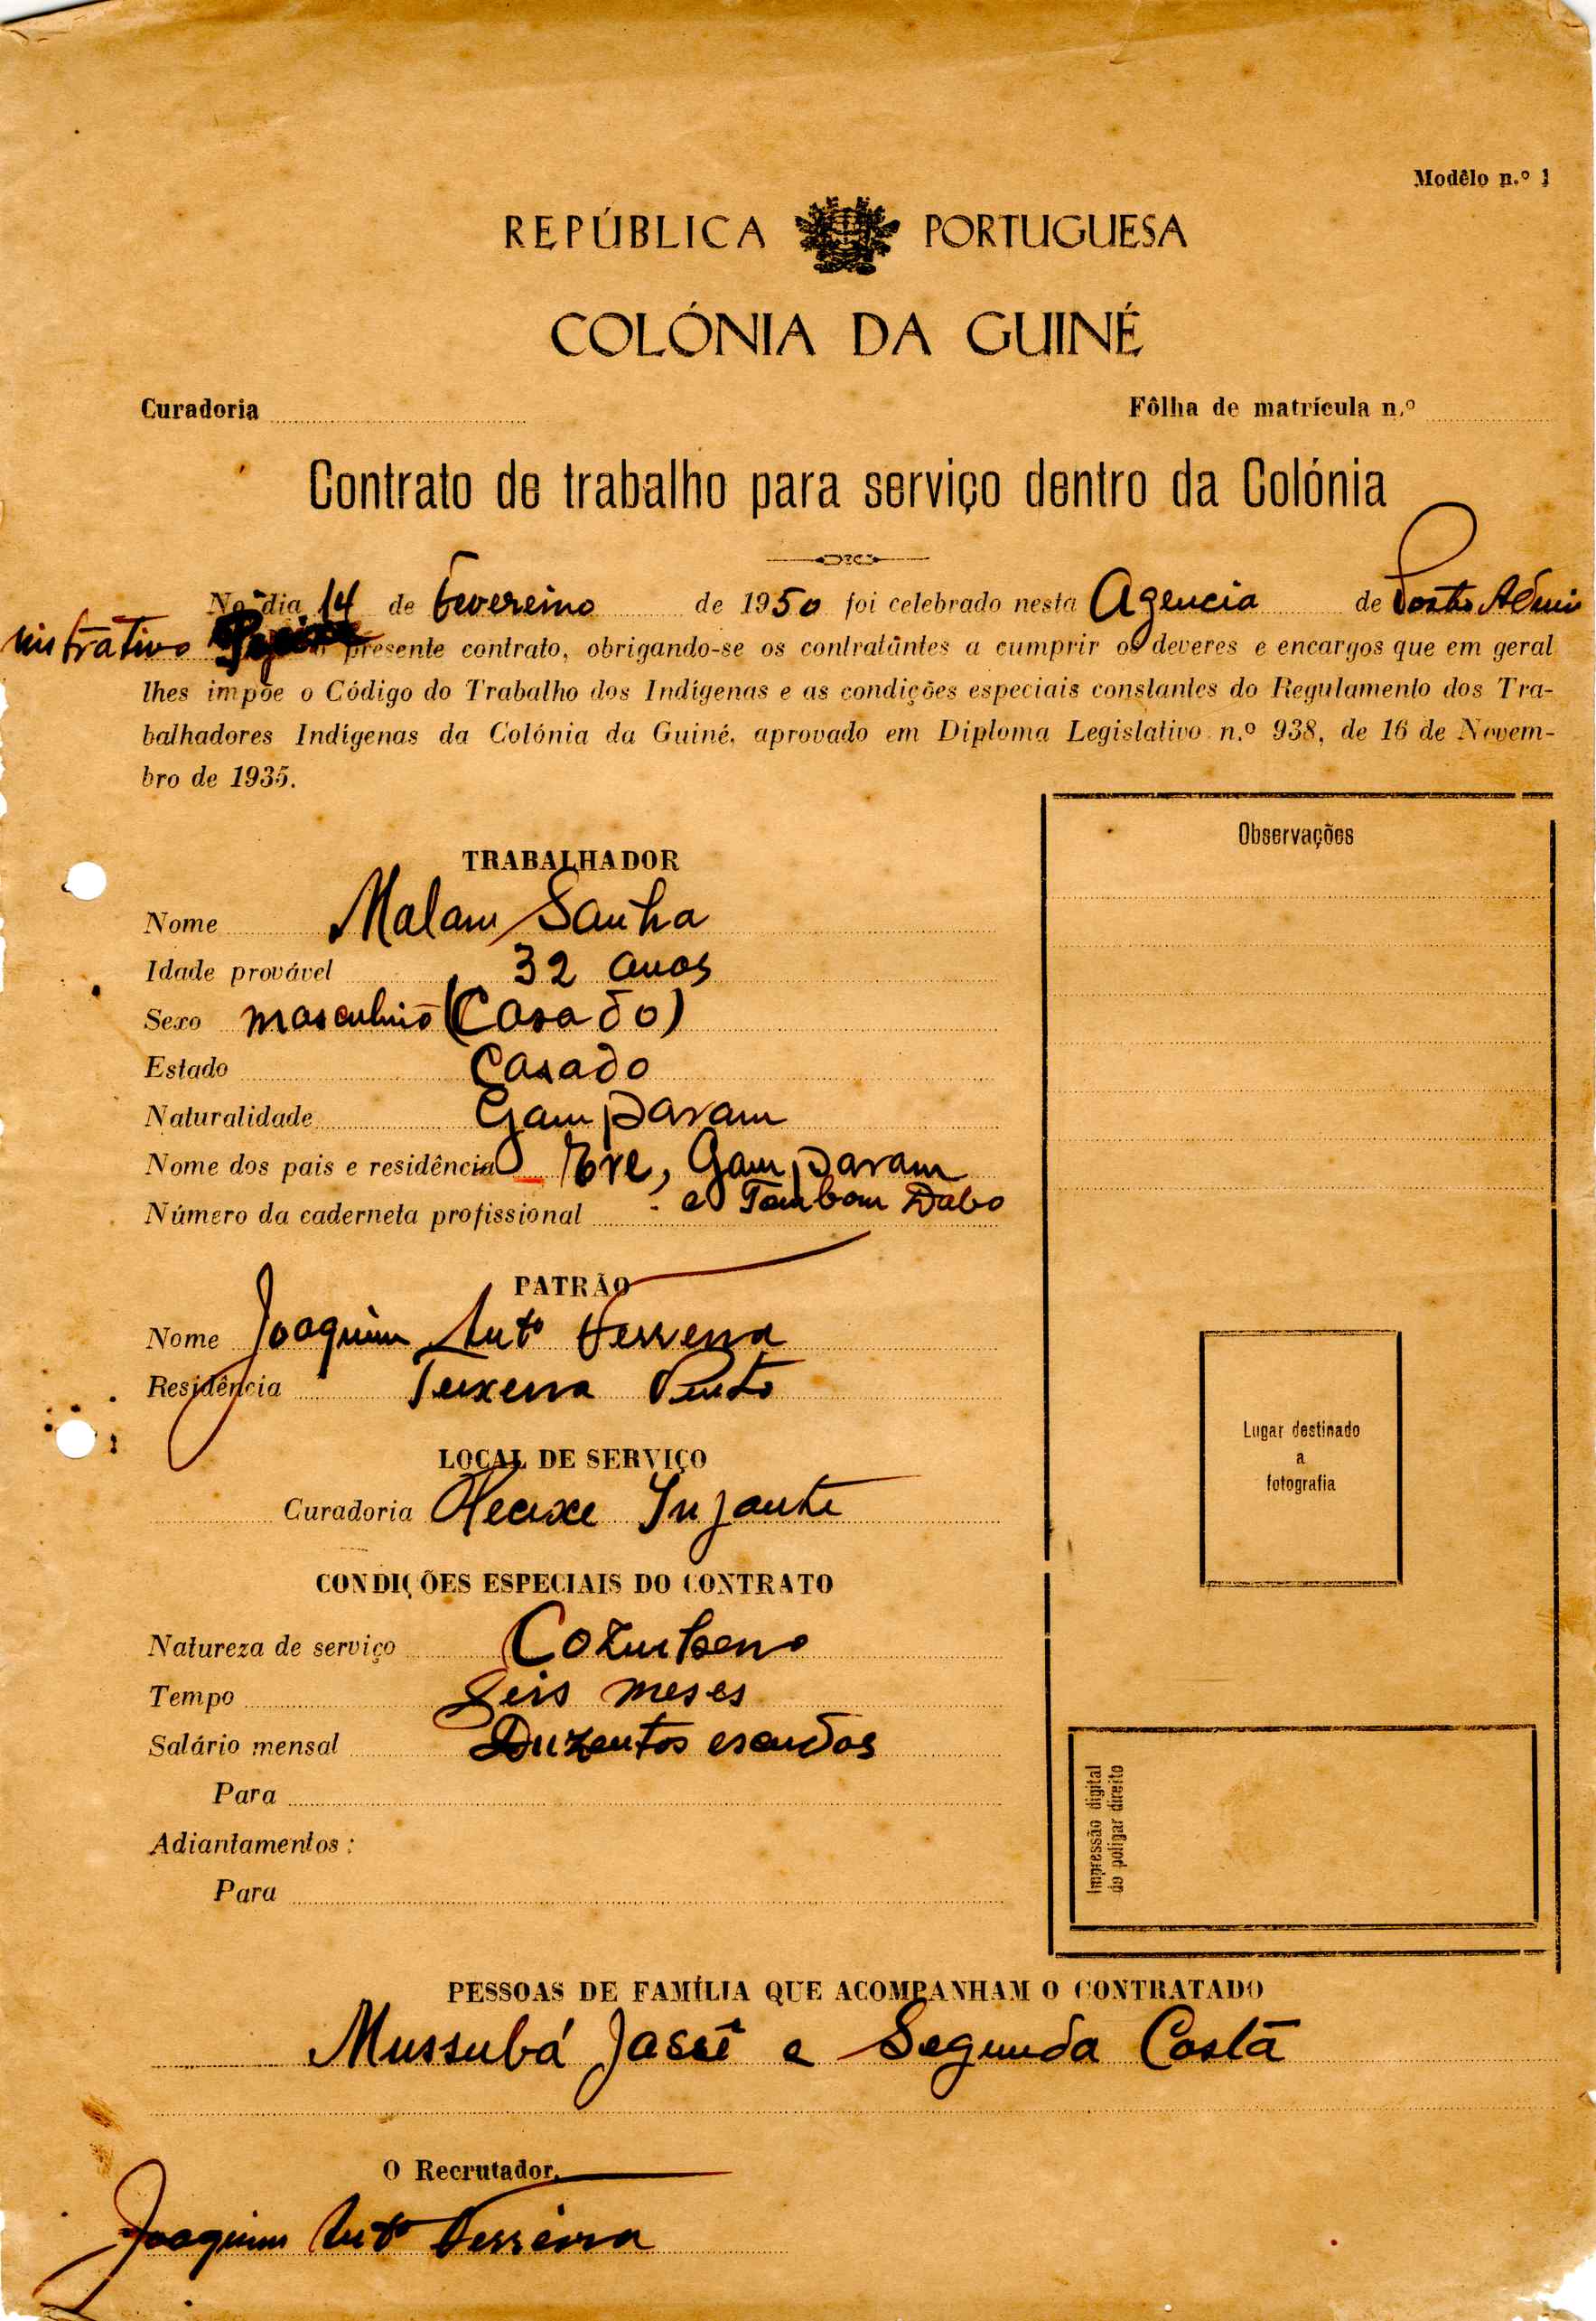 Modêlo n.º 1
REPÚBLICA PORTUGUESA
COLÓNIA DA GUINÉ
Curadoria
Fôlha de matrícula n.º
Contrato de trabalho para serviço dentro da Colónia
No dia 14 de Fevereiro de 1950 foi celebrado nesta Agencia de Posto Admi
nistrativo presente contrato, obrigando-se os contratântes a cumprir os deveres e encargos que em geral
lhes impõe o Código do Trabalho dos Indígenas e as condições especiais constantes do Regulamento dos Tra-
balhadores Indígenas da Colónia da Guiné, aprovado em Diploma Legislativo n.º 938, de 16 de Novem-
bro de 1935.
Observações
TRABALHADOR
Nome Malam Sanha
Idade provável 32 anos
Sexo masculino (Casado)
Estado Casado
Naturalidade Gamparam
Nome dos pais e residência Gamparam
e Tambam Dabo
Número da caderneta profissional
PATRÃO
Nome Joaquim Antº Ferreira
Residência Teixeira Pinto
LOCAL DE SERVIÇO
Curadoria
CONDIÇÕES ESPECIAIS DO CONTRATO
Natureza de serviço Cozinheiro
Tempo Seis meses
Salário mensal Duzentos escudos
Para
Adiantamentos:
Para
Lugar destinado
a
fotografia
Impressão digital
do poligar direito
PESSOAS DE FAMÍLIA QUE ACOMPANHAM O CONTRATADO
Mussubá Jassi e Segunda Costa
O Recrutador,
Joaquim Antº Ferreira